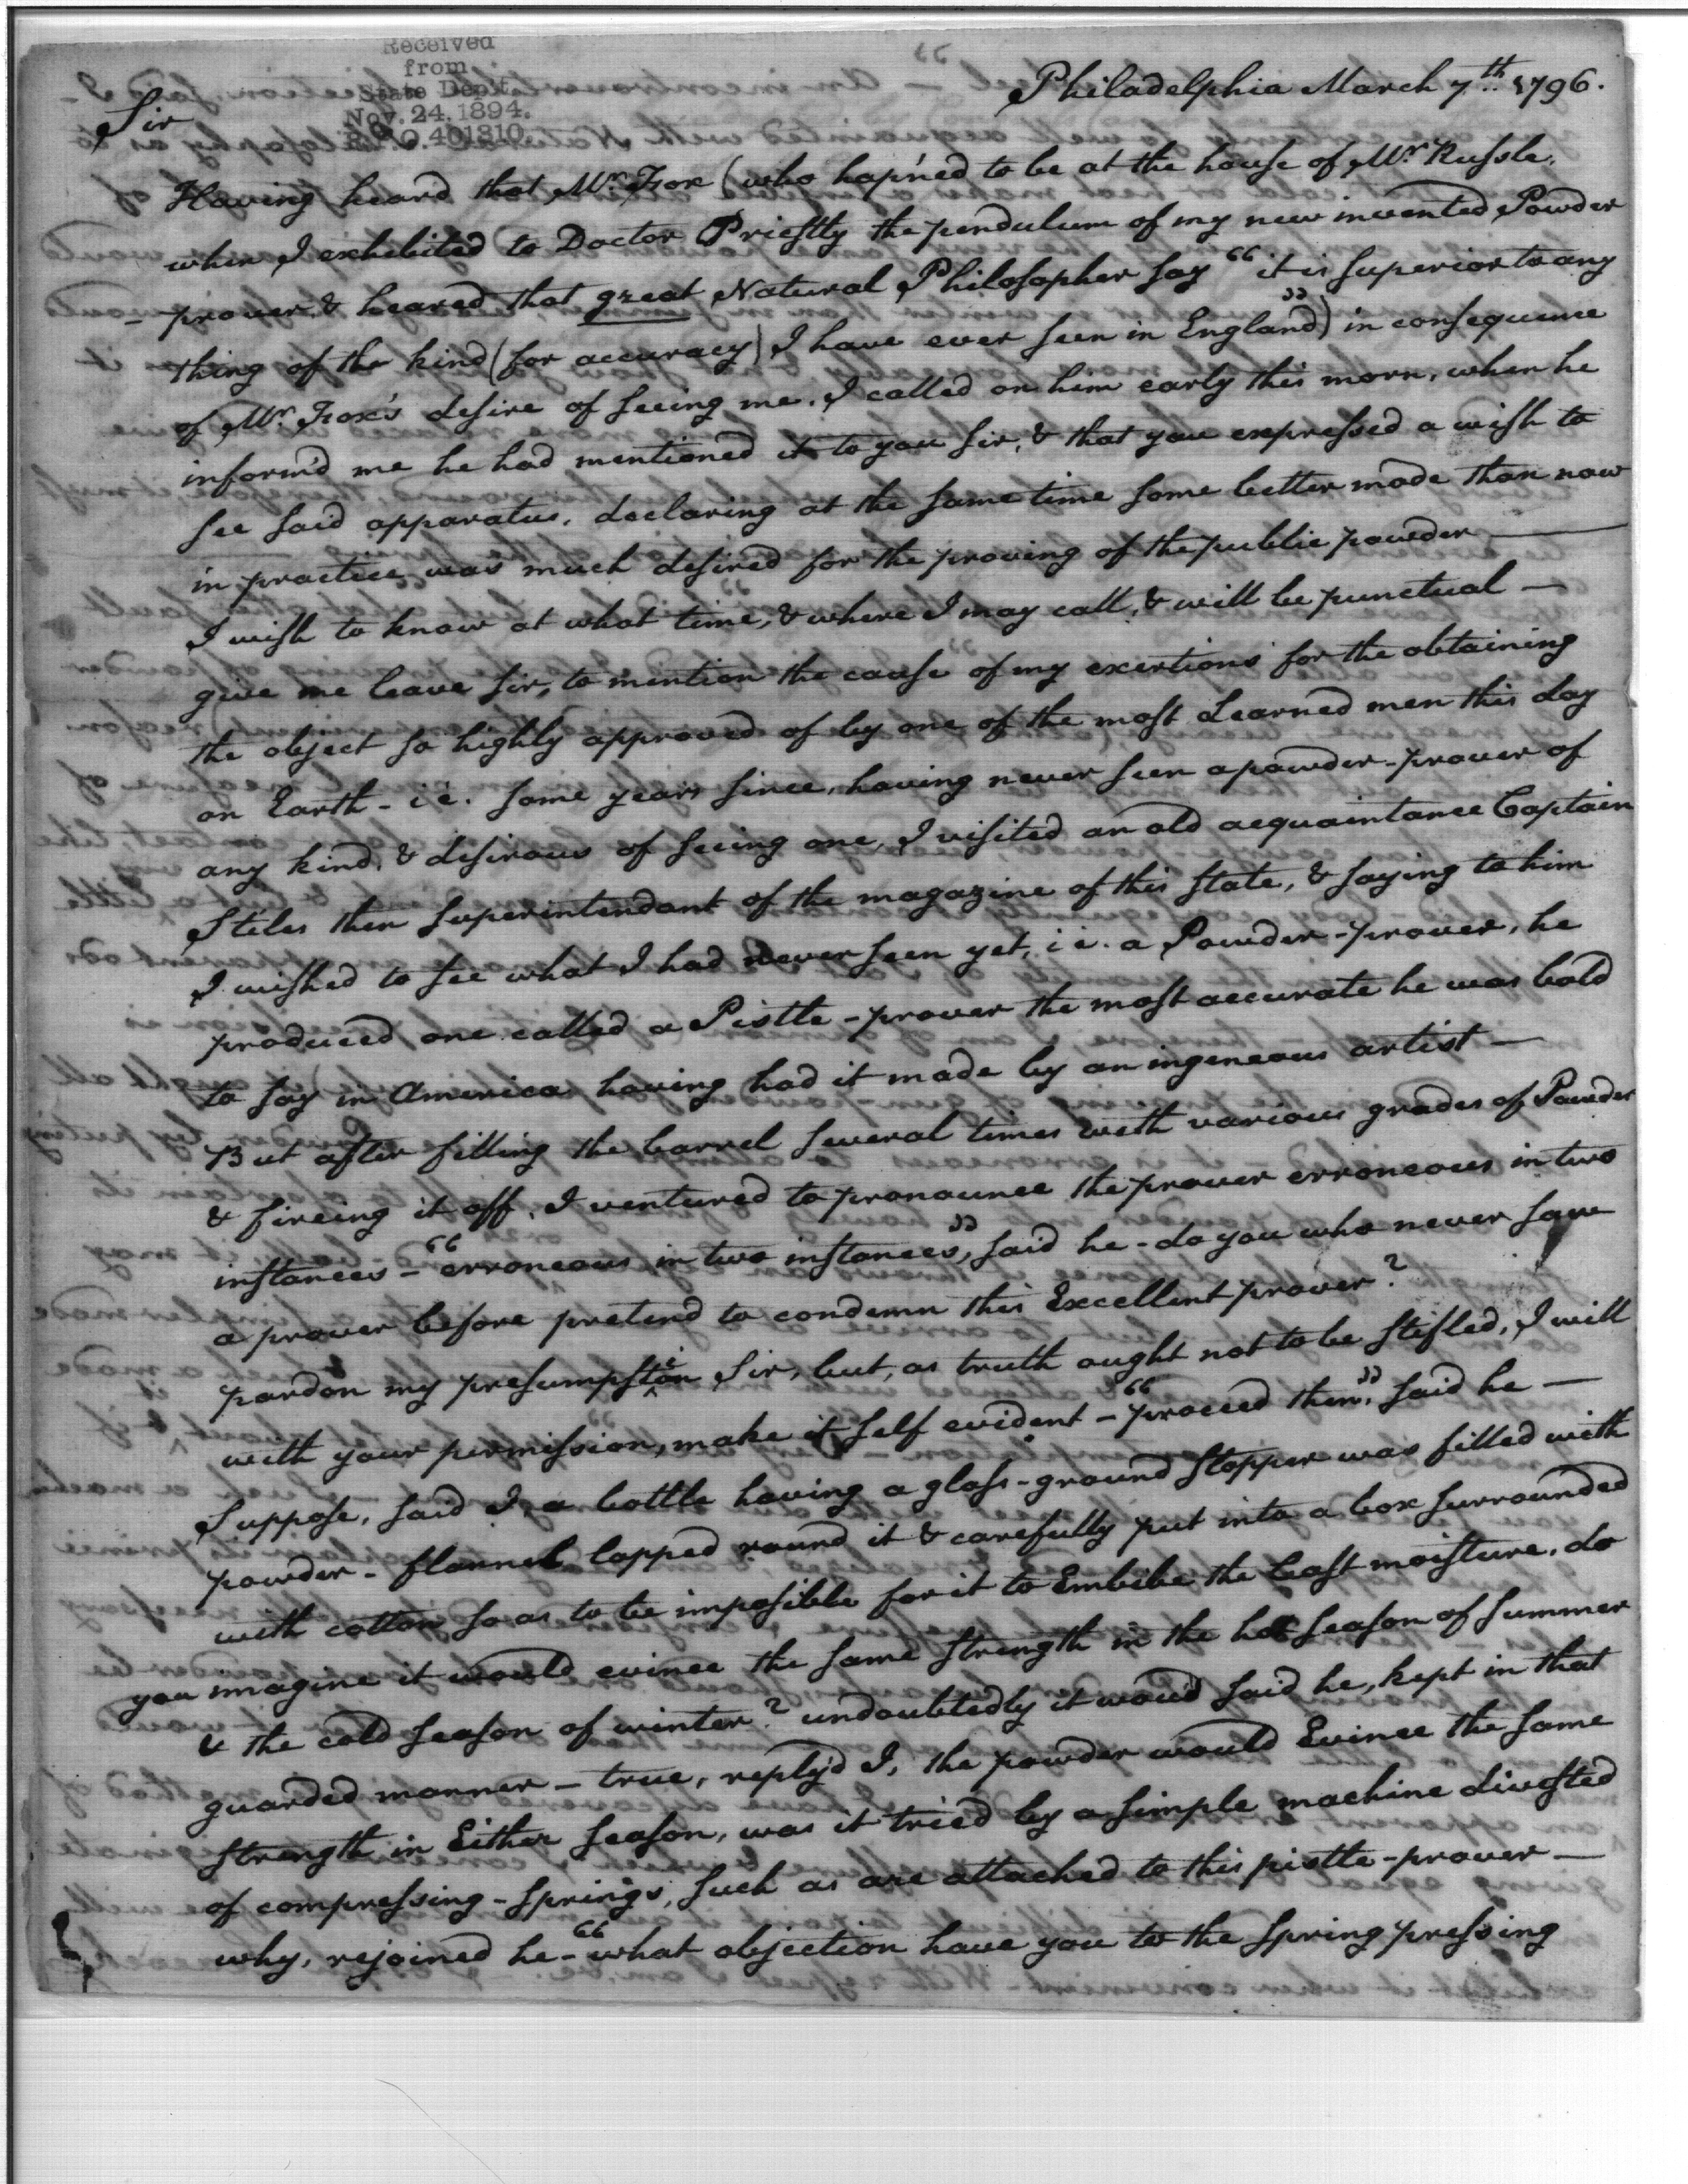 Received
from
State Dep't
Nov. 24. 1894.
R. & P. O. 401310.
Philadelphia March 7th. 1796.
Sir
Having heard that Mr. Fox (who hap'ned to be at the house of Mr. Russle,
when I exhibited to Doctor Priestly the pendulum of my new invented Powder
-prover, & heared that great Natural Philosopher say "it is superior to any
thing of the kind (for accuracy) I have ever seen in England") in consequence
of Mr. Fox's desire of seeing me. I called on him early this morn, when he
inform'd me he had mentioned it to you Sir, & that you expressed a wish to
see said apparatus, declaring at the same time some better mode than now
in practice was much desired for the proving of the public powder —
I wish to know at what time, & where I may call, & will be punctual —
give me leave Sir, to mention the cause of my exertions for the obtaining
the object so highly approved of by one of the most Learned men this day
on Earth - i.e. some years since, having never seen a powder-prover of
any kind, & desirous of seeing one, I visited an old acquaintance Captain
Stiles then superintendant of the magazine of this State, & saying to him
I wished to see what I had never seen yet, i.e. a Powder-prover, he
produced one called a Pistle-prover the most accurate he was bold
to say in America having had it made by an ingeneous artist —
But after filling the barrel several times with various grades of Powder
& fireing it off, I ventured to pronounce the prover erroneous in two
instances - "erroneous in two instances", said he - do you who never saw
a prover before pretend to condemn this Excellent prover?
pardon my presumpstion Sir, but, as truth ought not to be stifled, I will
with your permission, make it self evident - "proceed then", said he —
Suppose, said I, a bottle having a glass-ground stopper was filled with
powder - flannel lapped round it & carefully put into a box surrounded
with cotton so as to be imposible for it to Embibe the least moisture, do
you imagine it would evince the same strength in the hot season of summer
& the cold season of winter? undoubtedly it woud said he, kept in that
guarded manner - true, reply'd I, the powder would Evince the same
strength in Either season, was it tried by a simple machine divested
of compressing-springs, such as are attached to this pistle-prover —
why, rejoined he - "what objection have you to the spring pressing